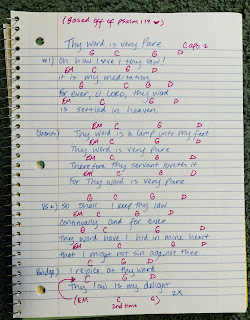 (Based off of psalm 119 ♥)
Thy Word is very Pure Capo 2
G C G D
VS 1) Oh how I love I thy law!
EM C G D
it is my meditation
G C G D
for ever, O LORD, thy word
EM C G D
is settled in heaven
EM C G D
Chorus) Thy Word is a lamp unto my feet
EM C G D
Thy Word is very Pure
EM C G D
Therefore thy servant loveth it
EM C G D
For Thy Word is very Pure
G C G D
VS 2) So shall I keep thy law
EM C G D
continually and for ever
G C G D
Thy word have I hid in mine heart
EM C G D
that I might not sin against thee
C G D
Bridge) I rejoice at thy word
C G D
Thy law is my delight
2X
(EM C G)
2nd time